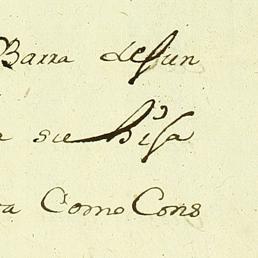 Barra deſun
a su hiſa
a Como Cons